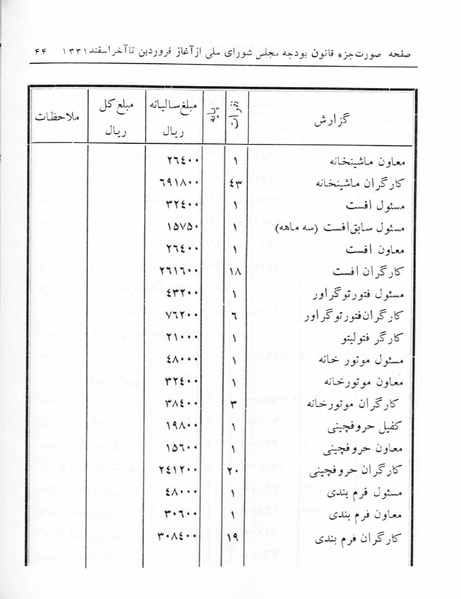 صفحه صورت جزء قانون بودجه مجلس شورای ملی از آغاز فروردین تا آخر اسفند ۱۳۳۱ ۴۴
گزارش نفرات پایه مبلغ سالیانه ریال مبلغ کل ریال ملاحظات
معاون ماشینخانه ۱ ۲۶٤۰۰
کارگران ماشینخانه ٤۳ ۶۹۱۸۰۰
مسئول افست ۱ ۳۲٤۰۰
مسئول سابق افست (سه ماهه) ۱ ۱۵۷۵۰
معاون افست ۱ ۲۶٤۰۰
کارگران افست ۱۸ ۲۶۱۶۰۰
مسئول فتورتوگراور ۱ ٤۳۲۰۰
کارگران فتورتوگراور ۶ ۷۶۲۰۰
کارگر فتولیتو ۱ ۲۱۰۰۰
مسئول موتور خانه ۱ ٤۸۰۰۰
معاون موتورخانه ۱ ۳۲٤۰۰
کارگران موتورخانه ۳ ۳۸٤۰۰
کفیل حروفچینی ۱ ۱۹۸۰۰
معاون حروفچینی ۱ ۱۵۶۰۰
کارگران حروفچینی ۲۰ ۲٤۱۲۰۰
مسئول فرم بندی ۱ ٤۸۰۰۰
معاون فرم بندی ۱ ۳۰۶۰۰
کارگران فرم بندی ۱۹ ۳۰۸٤۰۰